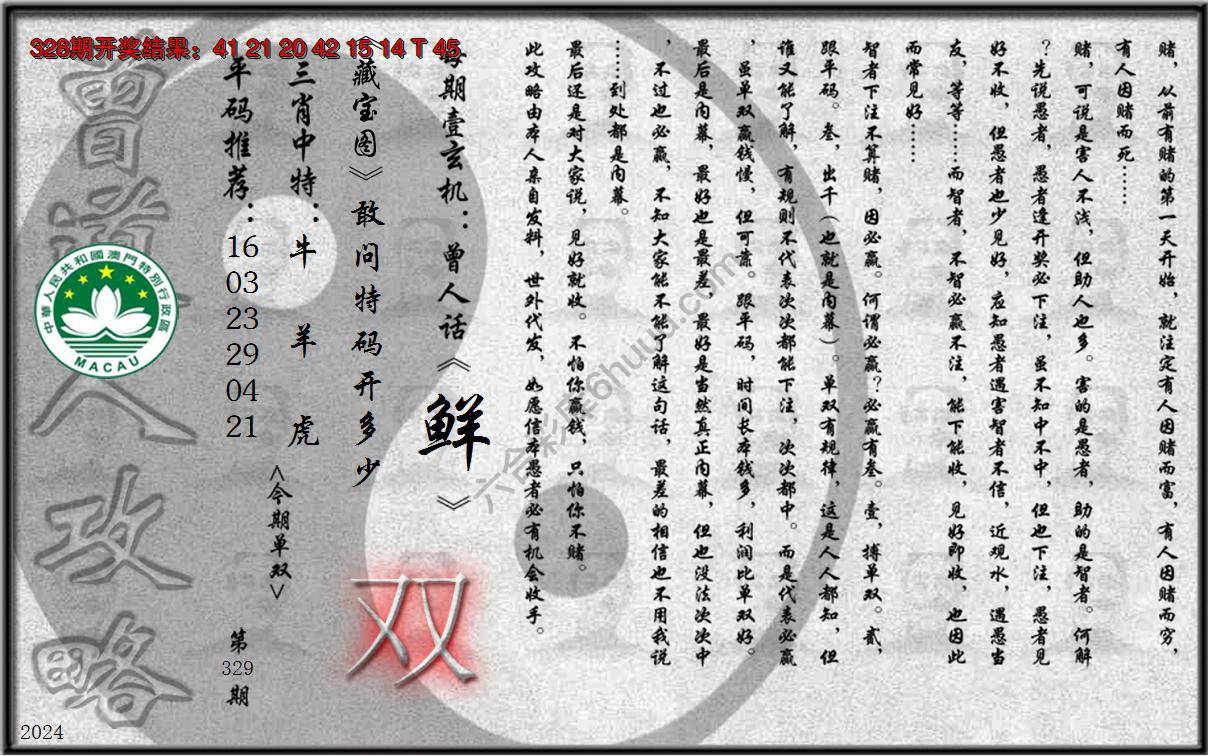 328期开奖结果：41 21 20 42 15 14 T 45
赌，从前有赌的第一天开始，就注定有人因赌而富，有人因赌而穷，
有人因赌而死……
赌，可说是害人不浅，但助人也多。害的是愚者，助的是智者。何解
？先说愚者，愚者逢开奖必下注，虽不知中不中，但也下注，愚者见
好不收，但愚者也少见好，应知愚者遇害智者不信，近观水，遇愚当
友，等等……而智者，不智必赢不注，能下能收，见好即收，也因此
而常见好……
智者下注不算赌，因必赢。何谓必赢？必赢有叁。壹，搏单双。贰，
跟平码。叁，出千（也就是内幕）。单双有规律，这是人人都知，但
谁又能了解，有规则不代表次次都能下注，次次都中。而是代表必赢
，虽单双赢钱慢，但可靠。跟平码，时间长本钱多，利润比单双好。
最后是内幕，最好也是最差，最好是当然真正内幕，但也没法次次中
，不过也必赢，不知大家能不能了解这句话，最差的相信也不用我说
……到处都是内幕。
最后还是对大家说，见好就收。不怕你赢钱，只怕你不赌。
此攻略由本人亲自发料，世外代发，如愿信本愚者必有机会收手。
每期壹玄机：曾人话《鲜》
《藏宝图》敢问特码开多少
双
三肖中特：牛 羊 虎
<今期单双>
平码推荐：16 03 23 29 04 21
第329期
曾道人攻略
中華人民共和國澳門特別行政區
MACAU
2024